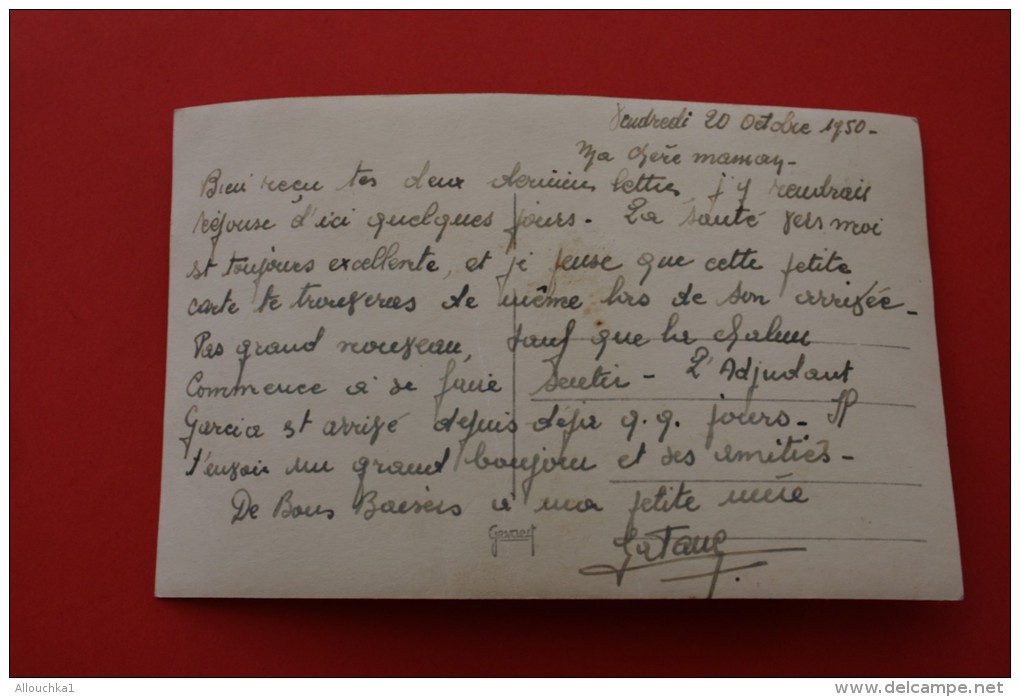 Vendredi 20 Octobre 1950-
Ma chère maman-
Bien reçu tes deux dernières lettres, j'y rendrais
réponse d'ici quelques jours. La santé vers moi
est toujours excellente, et je pense que cette petite
carte te trouveras de même lors de son arrivée-
Pas grand nouveau, sauf que la chaleur
Commence à se faire sentir- L'Adjudant
Garcia est arrivé depuis déjà q.q. jours- Il
t'envoie un grand bonjour et ses amitiés-
De Bons Baisers à ma petite mère
Gaétan
Gevaert
Allouchka1
www.delcampe.net